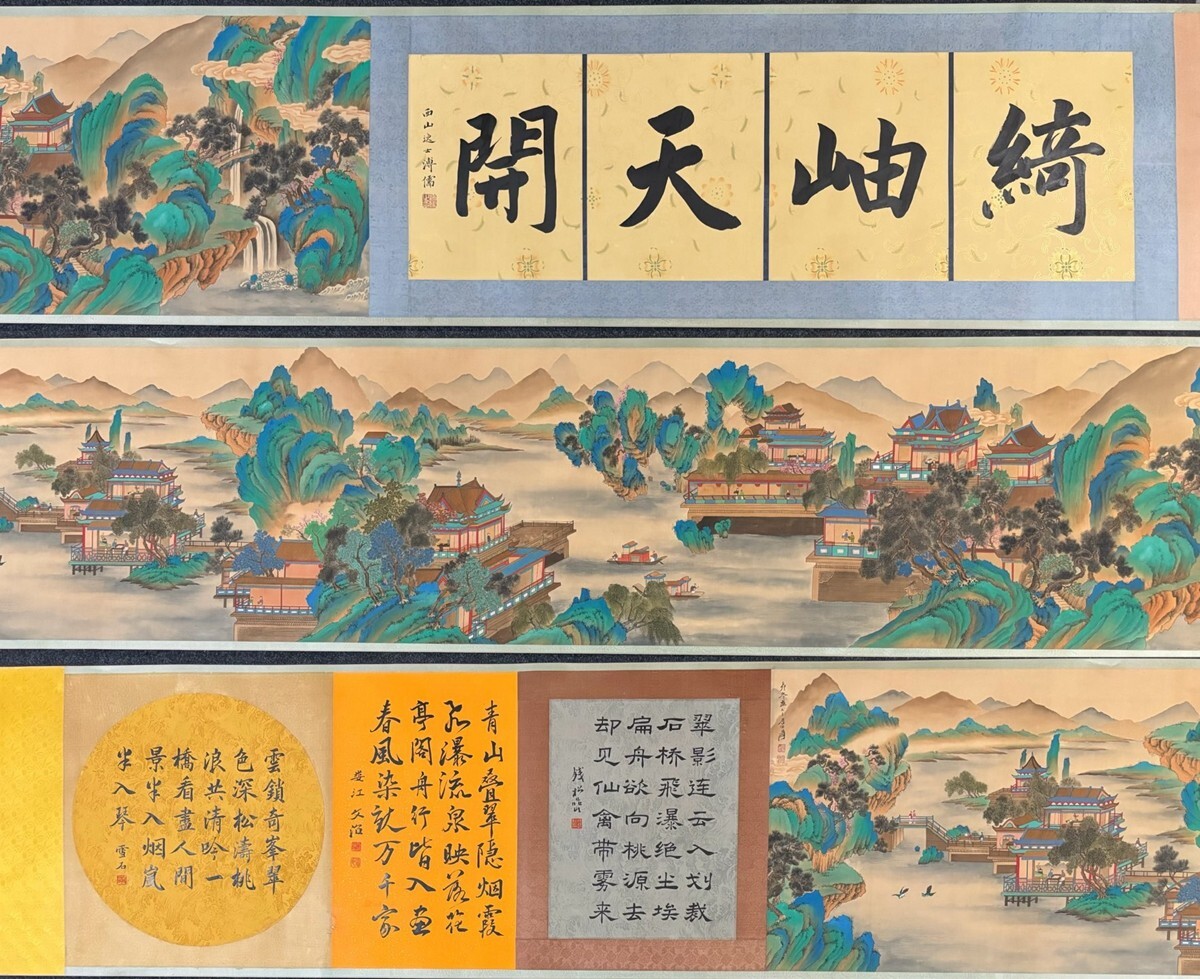 綺岫天開
西山逸士溥儒
翠影连云入划裁
石桥飞瀑绝尘埃
扁舟欲向桃源去
却见仙禽带雾来
钱松喦
青山疊翠隱烟霞
飛瀑流泉映落花
亭閣舟行皆入畫
春風染就万千家
雲鎖奇峯翠
色深松濤桃
浪共清吟一
橋看盡人間
景半入烟嵐
半入琴
雪石